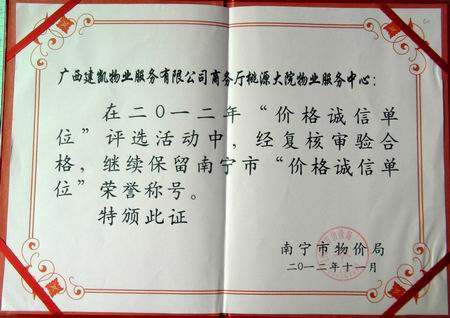 广西建凯物业服务有限公司商务厅桃源大院物业服务中心：
在二〇一二年“价格诚信单
位”评选活动中，经复核审验合
格，继续保留南宁市“价格诚信单
位”荣誉称号。
特颁此证
南宁市物价局
二〇一二年十一月